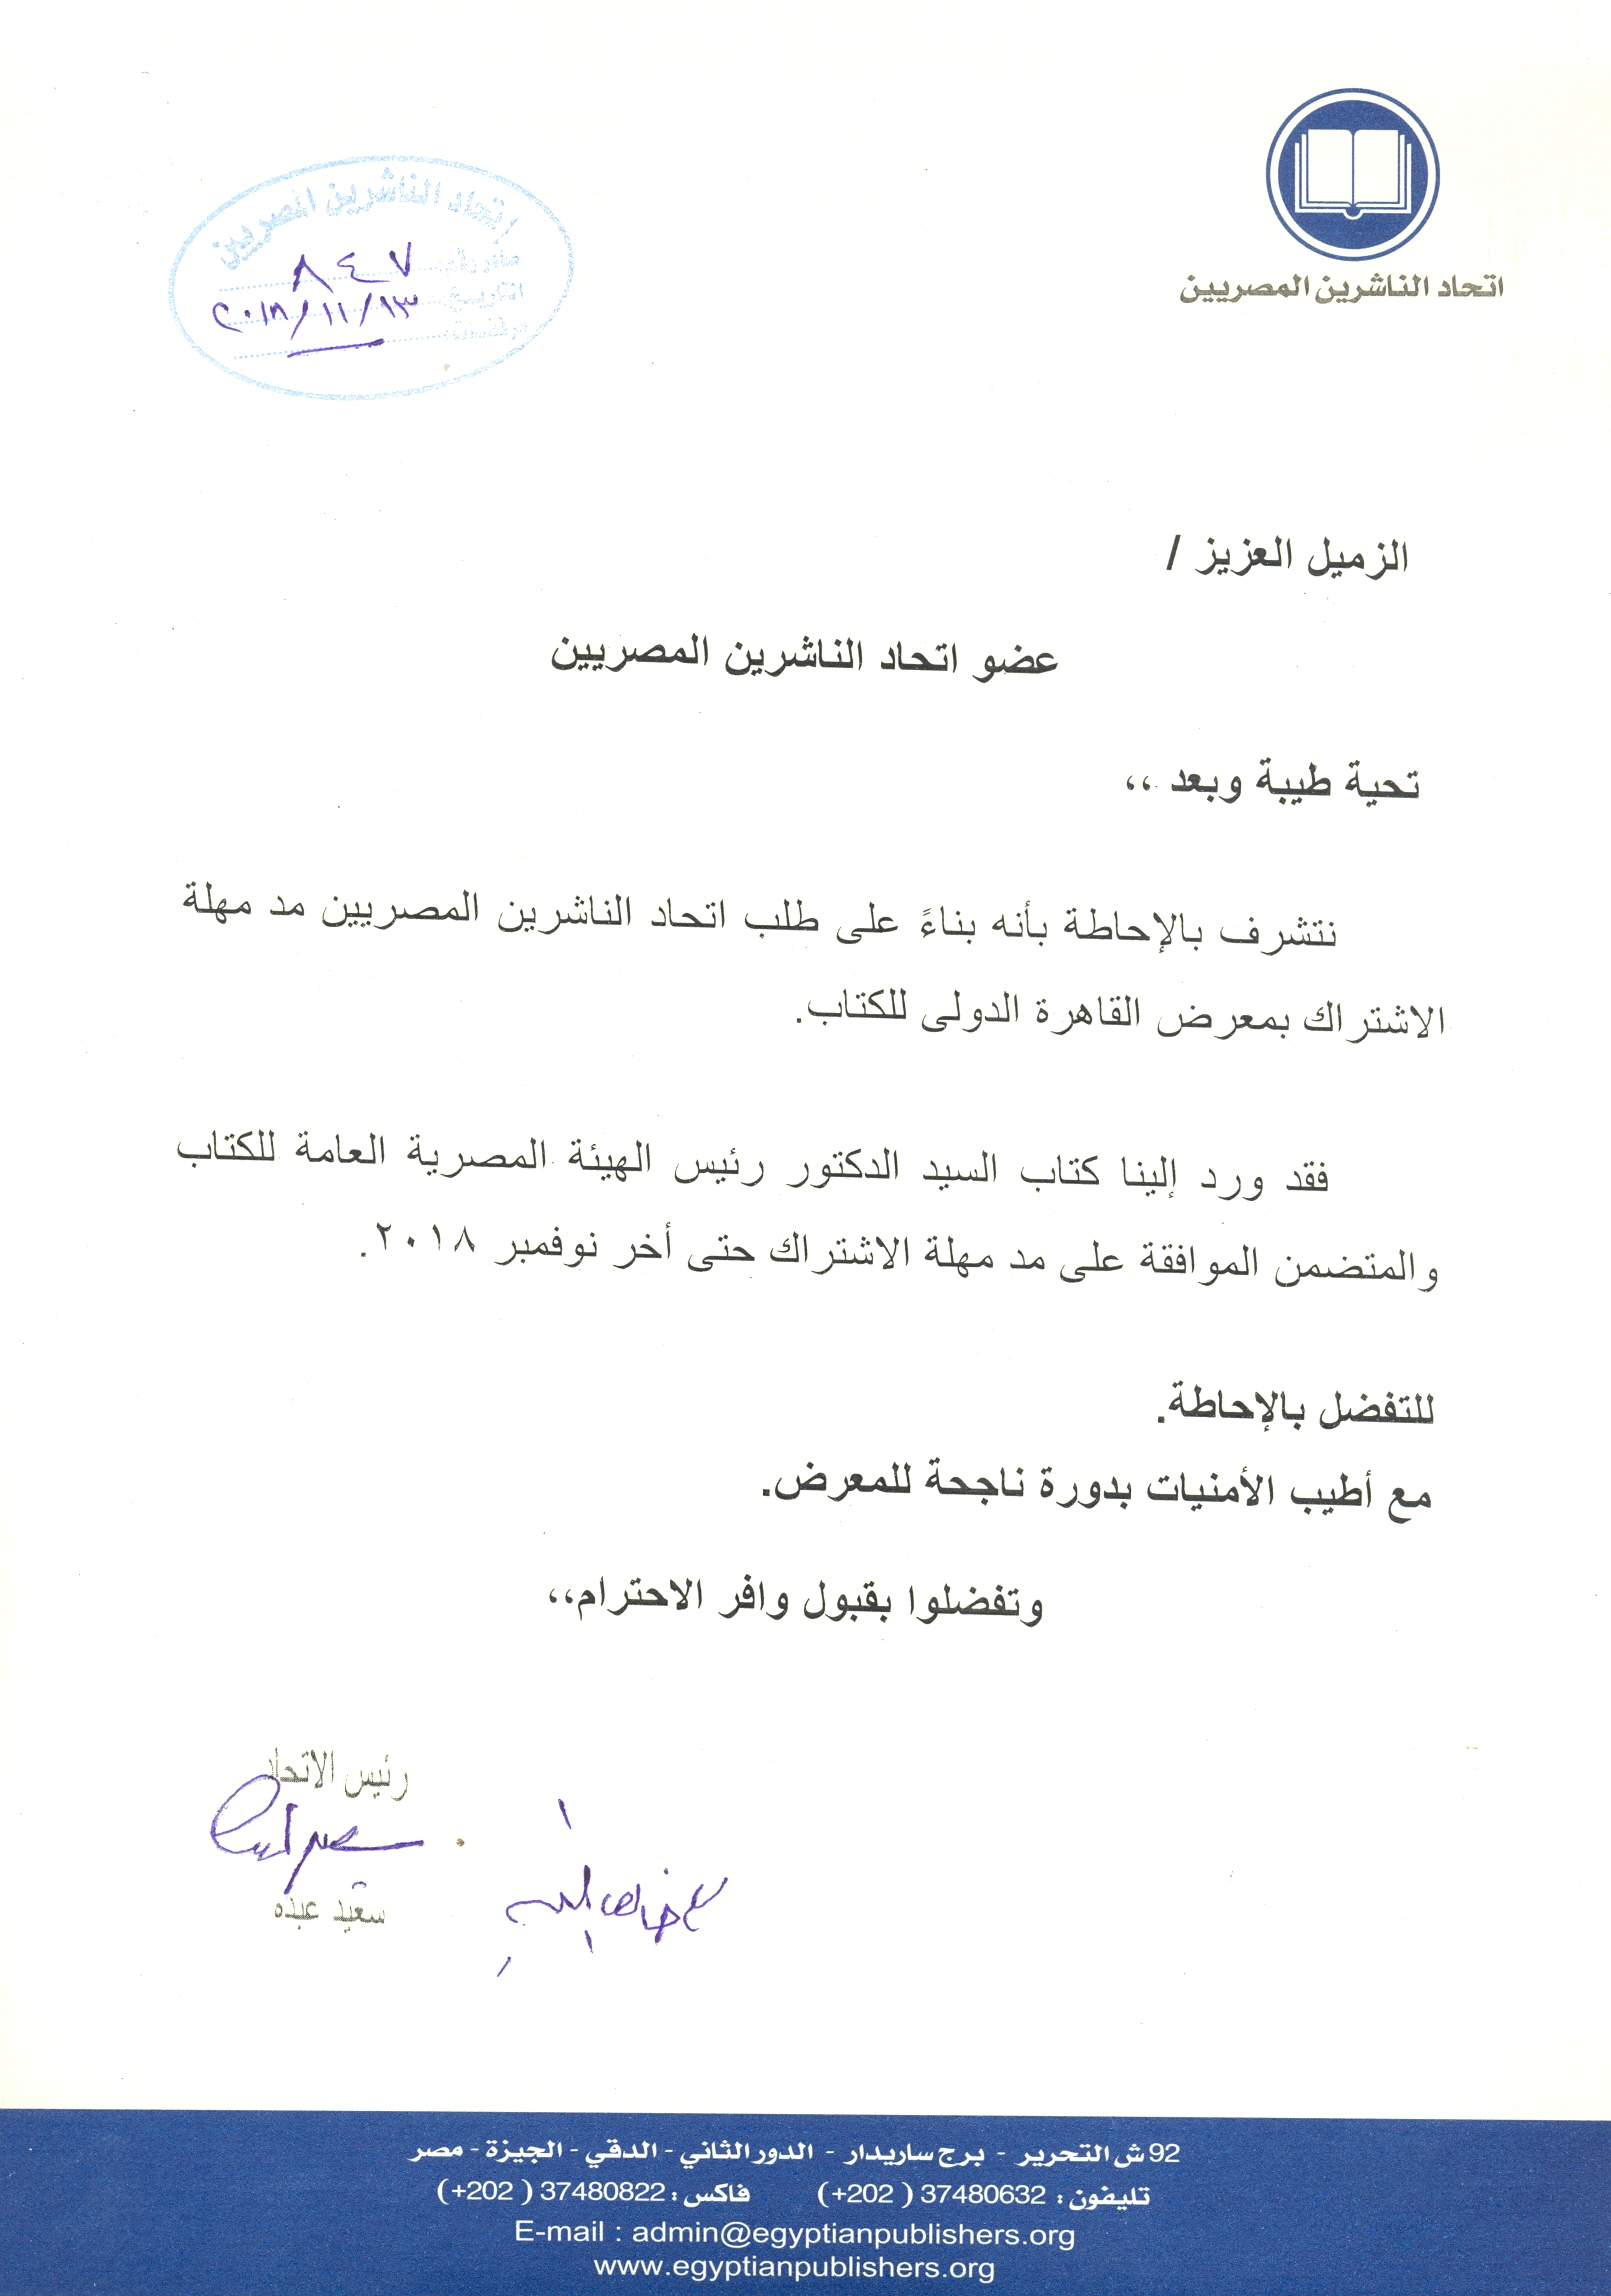 اتحاد الناشرين المصريين
اتحاد الناشرين المصريين
صادر رقم: ٨٤٧
التاريخ: ٢٠١٨/١١/١٣
مرفقات:
الزميل العزيز /
عضو اتحاد الناشرين المصريين
تحية طيبة وبعد ،،
نتشرف بالإحاطة بأنه بناءً على طلب اتحاد الناشرين المصريين مد مهلة
الاشتراك بمعرض القاهرة الدولى للكتاب.
فقد ورد إلينا كتاب السيد الدكتور رئيس الهيئة المصرية العامة للكتاب
والمتضمن الموافقة على مد مهلة الاشتراك حتى أخر نوفمبر ٢٠١٨.
للتفضل بالإحاطة.
مع أطيب الأمنيات بدورة ناجحة للمعرض.
وتفضلوا بقبول وافر الاحترام،،
رئيس الاتحاد
سعيد عبده
92 ش التحرير - برج ساريدار - الدور الثاني - الدقي - الجيزة - مصر
تليفون : 37480632 ( 202+) فاكس : 37480822 ( 202+)
E-mail : admin@egyptianpublishers.org
www.egyptianpublishers.org